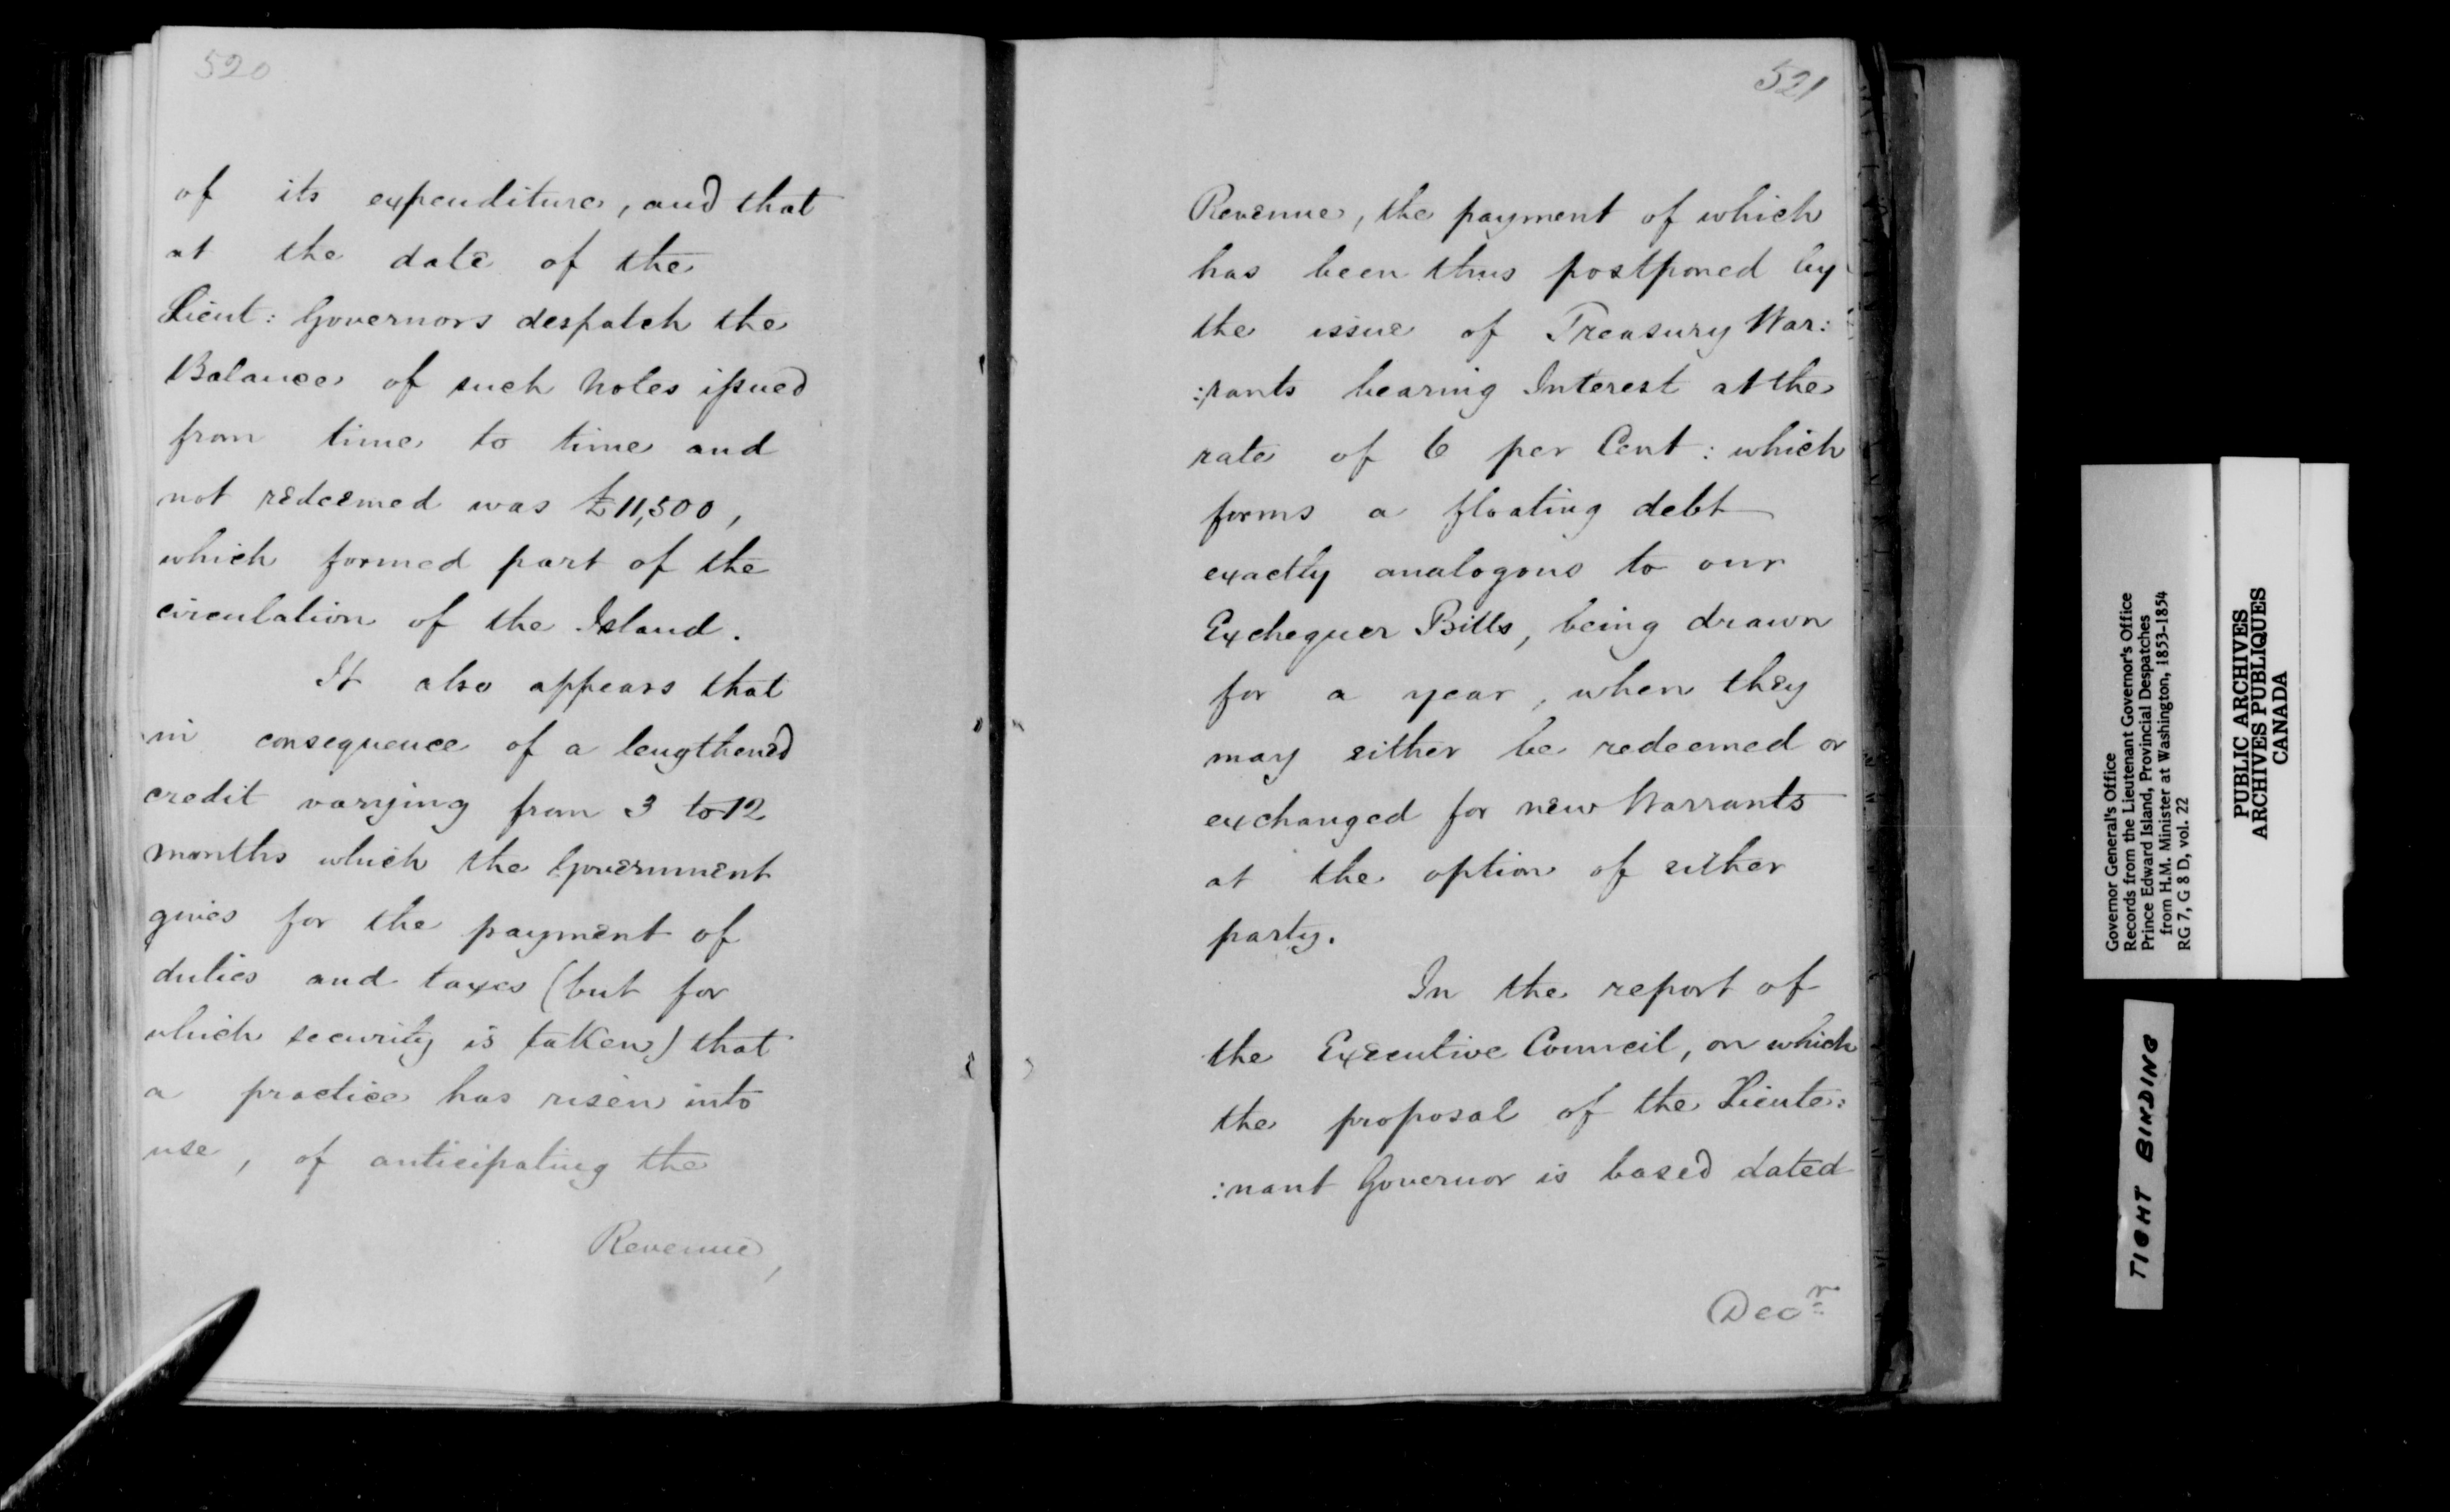 520
of its expenditure, and that
at the date of the
Lieut: Governors despatch the
Balance of such Notes issued
from time to time and
not redeemed was £11,500,
which formed part of the
circulation of the Island.
It also appears that
in consequence of a lengthened
credit varying from 3 to 12
months which the Government
gives for the payment of
duties and taxes (but for
which security is taken) that
a practice has risen into
use, of anticipating the
Revenue,
521
Revenue, the payment of which
has been thus postponed by
the issue of Treasury War:
:rants bearing Interest at the
rate of 6 per Cent: which
forms a floating debt
exactly analogous to our
Exchequer Bills, being drawn
for a year, when they
may either be redeemed or
exchanged for new Warrants
at the option of either
party.
In the report of
the Executive Council, on which
the proposal of the Lieute:
:nant Governor is based dated
Decr
Governor General's Office
Records from the Lieutenant Governor's Office
Prince Edward Island, Provincial Despatches
from H.M. Minister at Washington, 1853-1854
RG 7, G 8 D, vol. 22
PUBLIC ARCHIVES
ARCHIVES PUBLIQUES
CANADA
TIGHT BINDING